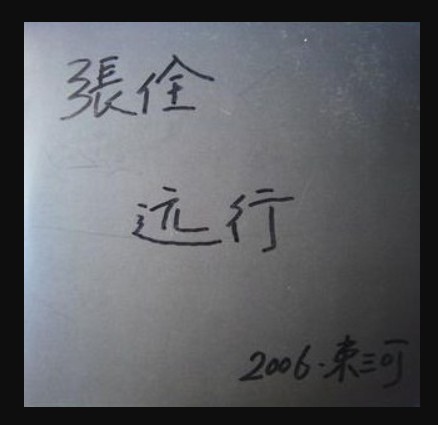 張佺
远行
2006·東三可